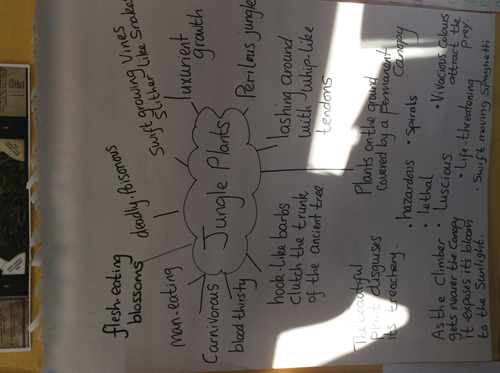 flesh-eating
blossoms
deadly. Poisonous
Swift growing Vines
Slither like Snakes
luxurient
growth
Perilous jungle
man-eating
Carnivorous
blood thirsty
Jungle Plants
lashing around
with whip-like
tendons
hook-like barbs
clutch the trunk
of the ancient tree.
Plants on the ground
covered by a Permanent
Canopy
The beautiful
Plant disguises
its treachery.
• hazardous
• Spirals
• lethal
• luscious
• Vivacious Colours
attract the
prey.
• Life-threatening
• Swift moving Spaghetti
As the Climber
gets nearer the Canopy
it exposes its bloom
to the Sunlight.